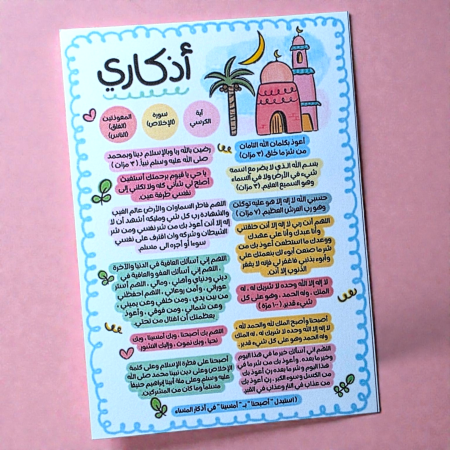 أذكاري
آية
الكرسي
سورة
(الإخلاص)
المعوذتين
(الفلق)
(الناس)
أعوذ بكلمات الله التامات
من شر ما خلق (٣ مرات)
بسم الله الذي لا يضر مع اسمه
شيء في الأرض ولا في السماء
وهو السميع العليم (٣ مرات)
حسبي الله لا إله إلا هو عليه توكلت
وهو رب العرش العظيم (٧ مرات)
اللهم أنت ربي لا إله إلا أنت خلقتني
وأنا عبدك وأنا على عهدك
ووعدك ما استطعت أعوذ بك من
شر ما صنعت أبوء لك بنعمتك علي
وأبوء بذنبي فاغفر لي فإنه لا يغفر
الذنوب إلا أنت.
لا إله إلا الله وحده لا شريك له ، له
الملك ، وله الحمد ، وهو على كل
شيء قدير (١٠٠ مرة)
أصبحنا وأصبح الملك لله والحمد لله ،
لا إله إلا الله وحده لا شريك له ، له الملك
وله الحمد وهو على كل شيء قدير.
اللهم إني أسألك خير ما في هذا اليوم
وخير ما بعده ، وأعوذ بك من شر ما في
هذا اليوم وشر ما بعده رب أعوذ بك
من الكسل وسوء الكبر ، رب أعوذ بك
من عذاب في النار وعذاب في القبر
رضيت بالله ربا وبالإسلام دينا وبمحمد
صلى الله عليه وسلم نبياً (٣ مرات)
يا حي يا قيوم برحمتك أستغيث
أصلح لي شأني كله ولا تكلني إلى
نفسي طرفة عين.
اللهم فاطر السماوات والأرض عالم الغيب
والشهادة رب كل شيء ومليكه أشهد أن لا
إله إلا أنت أعوذ بك من شر نفسي ومن شر
الشيطان وشركه وأن اقترف على نفسي
سوءا أو أجره الى مسلم.
اللهم إني أسألك العافية في الدنيا والآخرة
، اللهم إني أسألك العفو والعافية في
ديني ودنياي وأهلي ، ومالي ، اللهم أستر
عوراتي ، وآمن روعاتي ، اللهم احفظني
من بين يدي ، ومن خلفي وعن يميني
وعن شمالي ، ومن فوقي ، وأعوذ
بعظمتك أن اغتال من تحتي.
اللهم بك أصبحنا ، وبك أمسينا ، وبك
نحيا ، وبك نموت ، وإليك النشور.
أصبحنا على فطرة الإسلام وعلى كلمة
الإخلاص وعلى دين نبينا محمد صلى الله
عليه وسلم وعلى ملة أبينا إبراهيم حنيفا
مسلما وما كان من المشركين.
(استبدل "أصبحنا" بـ "أمسينا" في أذكار المساء